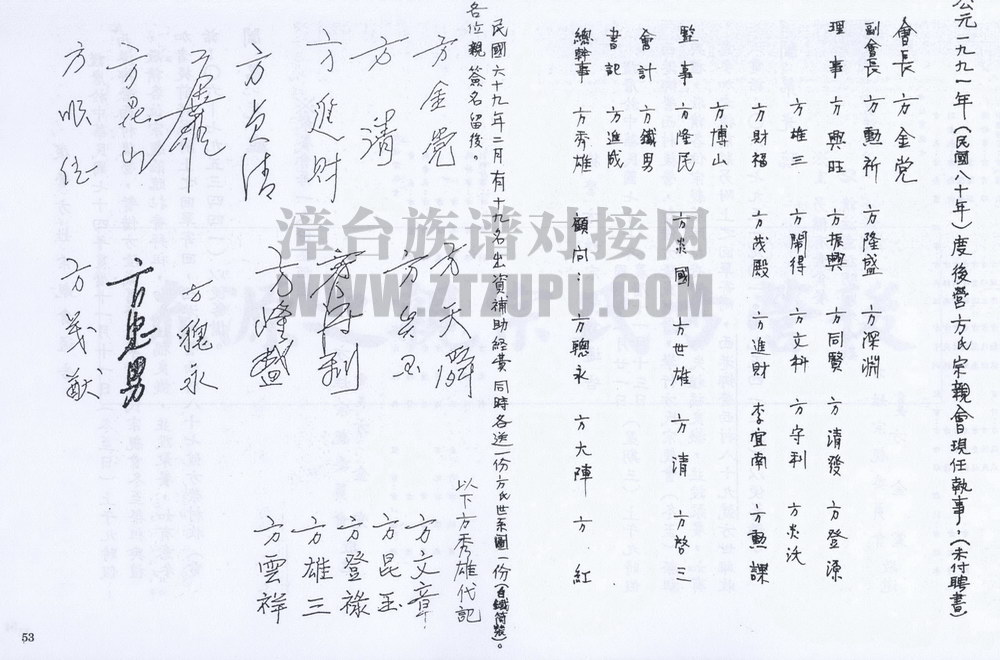 公元一九九一年(民國八十年)度後營方氏宗親會現任執事,(未付聘書)
會長 方金党
副會長 方勳祈 方隆盛 方深淵
理事 方興旺 方振興 方同賢 方清發 方登源
方雄三 方開得 方文科 方守利 方炎沃
方財福 方茂殿 方進財 李宜南 方勳課
方博山
監事 方隆民 方炎國 方世雄 方清 方啓三
會計 方鐵男
書記 方進成
總幹事 方秀雄 顧問: 方聰永 方大陣 方紅
民國六十九年二月有十九名出資補助經費同時各送一份方氏世系圖一份(白鐵筒裝)。
各位親簽名留後。
以下方秀雄代記
方金党 方天
方文章
方清
方昆玉
方進財
方登祿
方貞清
方雄三
方雲祥
方昆山
方順住
永
方忠男
方義
漳台族谱对接网
WWW.ZTZUPU.COM
53